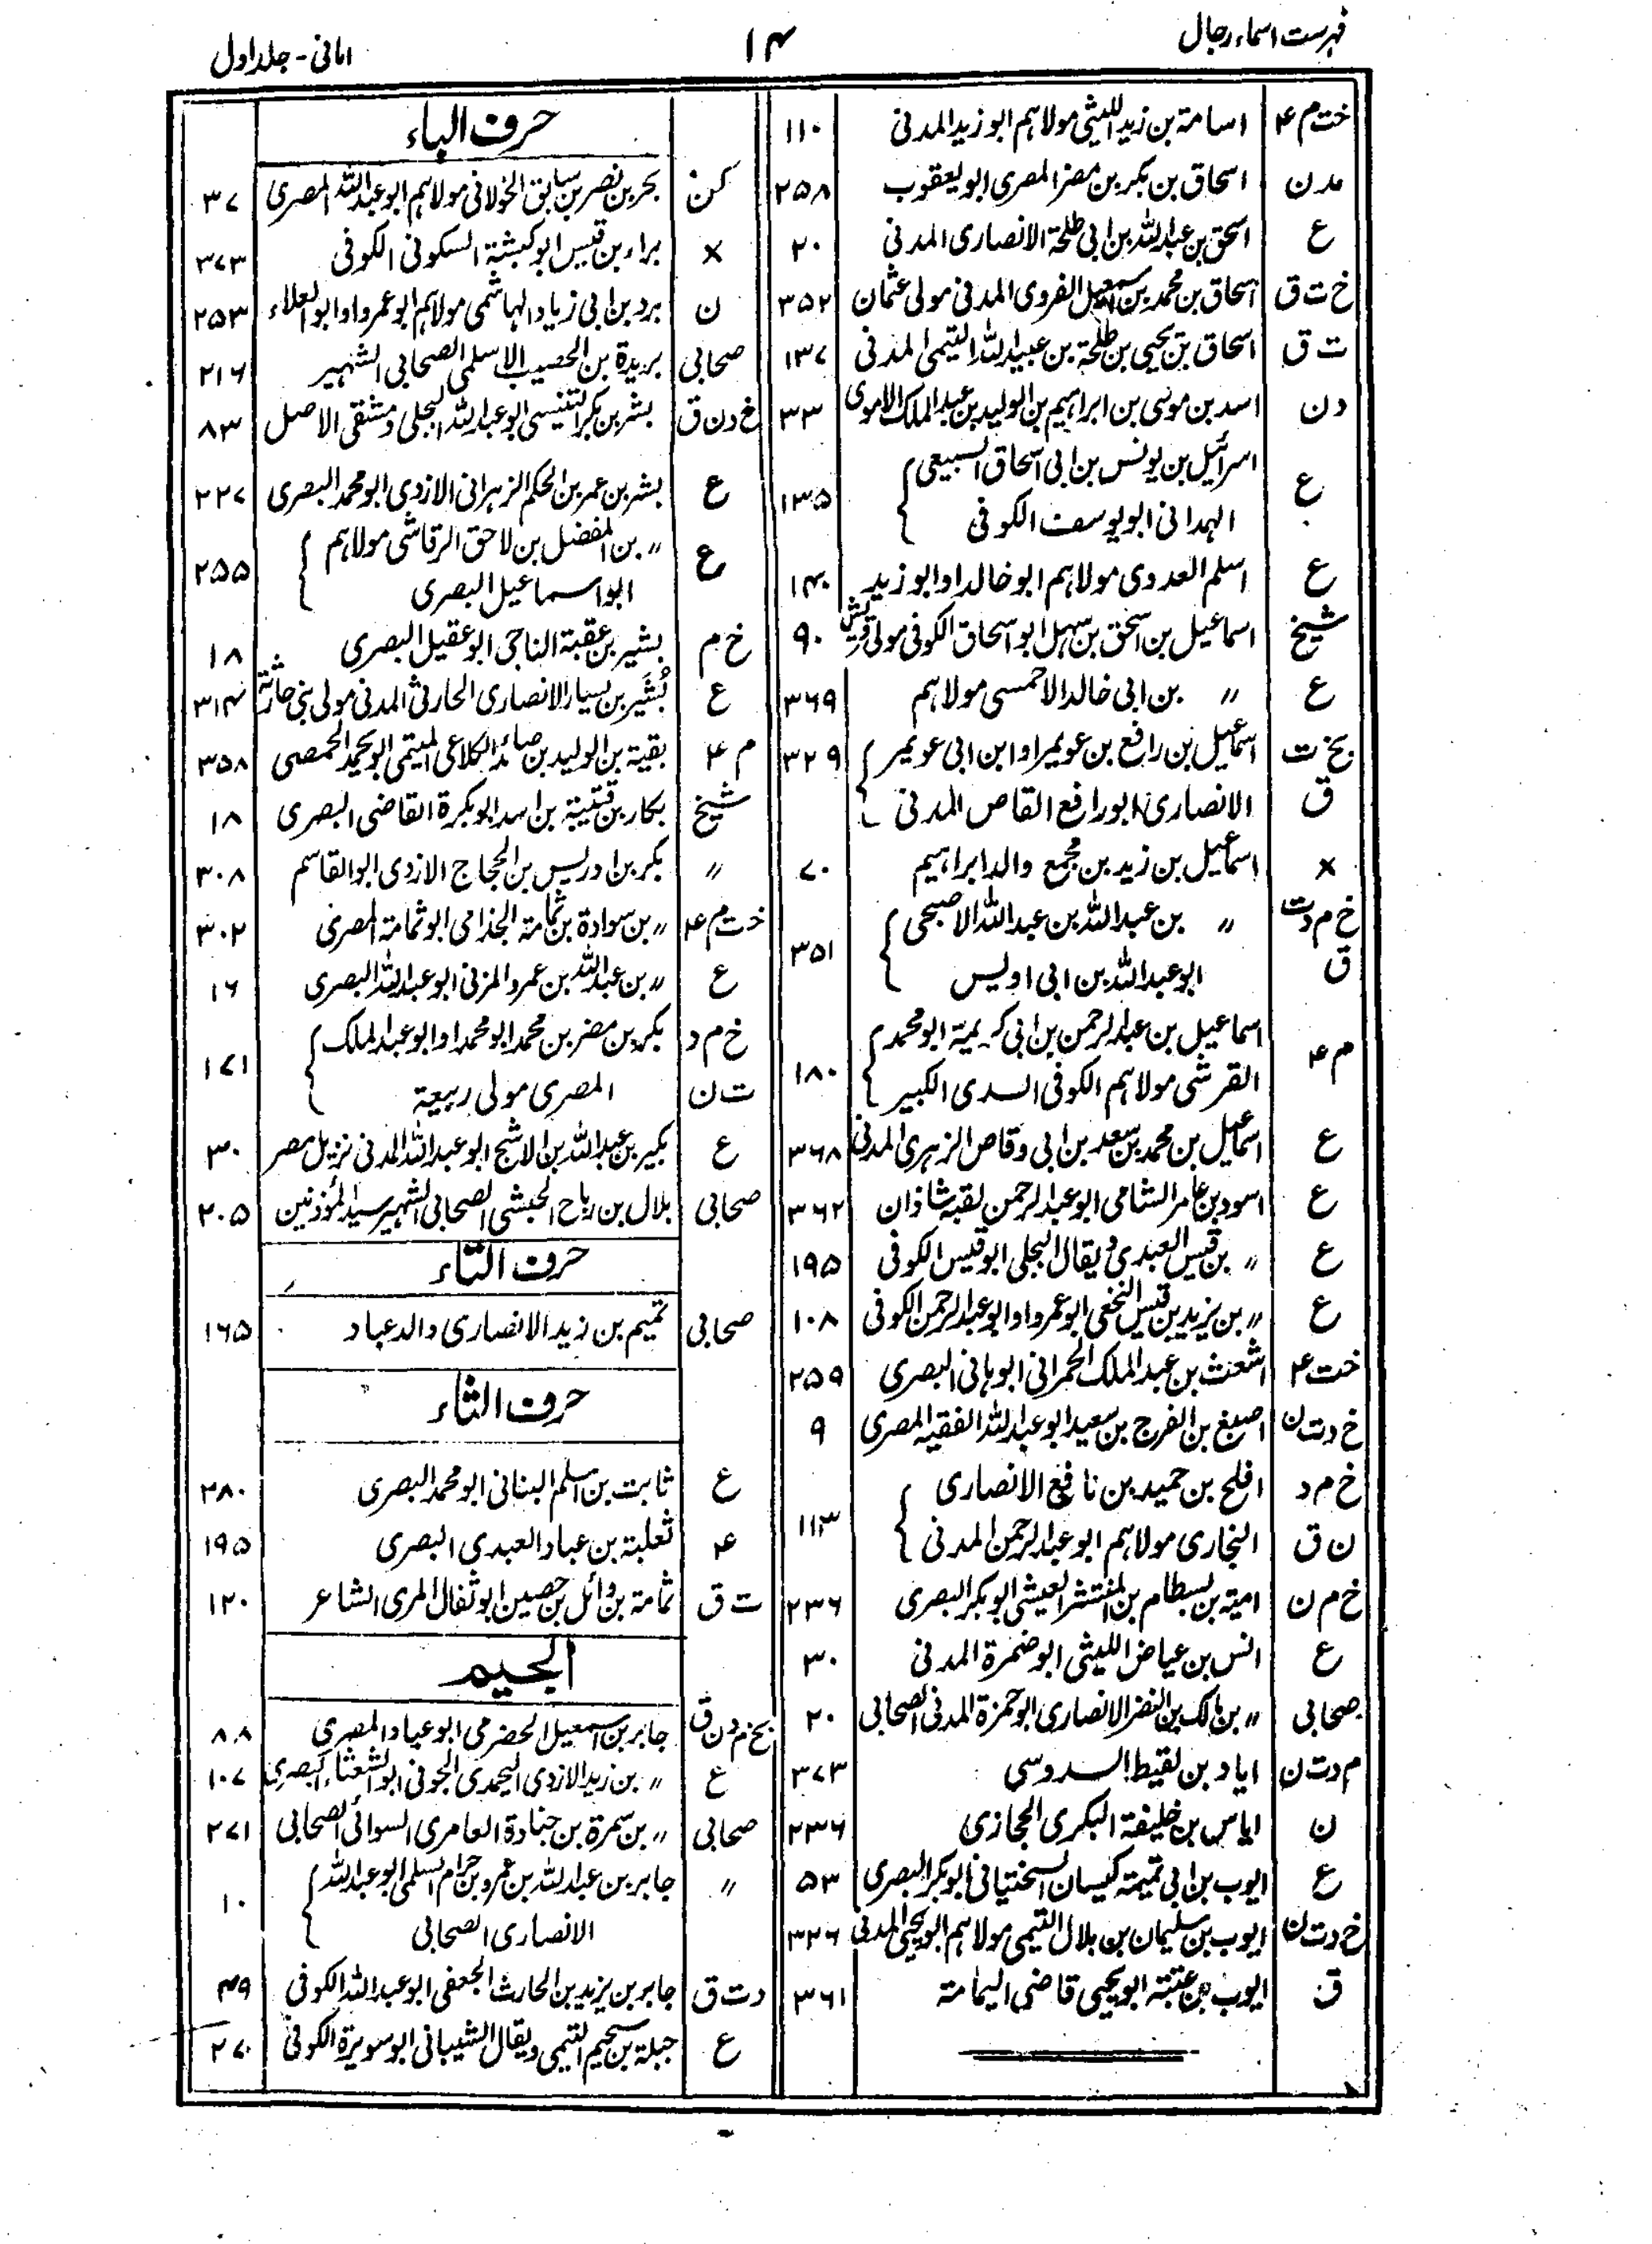 فہرست اسماء رجال
۱۴
امانی - جلد اول
خت م ۴ اسامة بن زيد الليثی مولاہم ابو زيد المدنی ۱۱۰
مدن اسحاق بن بکر بن مضر المصری ابو یعقوب ۲۵۸
ع اسحق بن عبد اللہ بن ابی طلحة الانصاری المدنی ۲۰
خ ت ق اسحاق بن محمد بن اسمعیل الفروی المدنی مولی عثمان ۳۵۲
ت ق اسحاق بن یحیی بن طلحة بن عبید اللہ التیمی المدنی ۱۳۷
دن اسد بن موسی بن ابراہیم بن الولید بن عبد الملک الاموی ۳۳
ع اسرائیل بن یونس بن ابی اسحاق السبیعی ۱۳۵
الہمدانی ابو یوسف الکوفی
ع اسلم العدوی مولاہم ابو خالد او ابو زید ۱۴۰
شیخ اسماعیل بن اسحق بن سہل ابو اسحاق الکوفی مولی قریش ۹۰
ع 〃 بن ابی خالد الاحمسی مولاہم ۳۶۹
بخ ت اسمٰعیل بن رافع بن عویمر او ابن ابی عویمر ۳۲۹
ق الانصاری ابو رافع القاص المدنی
× اسمٰعیل بن زید بن مجمع والد ابراہیم ۷۰
خ م دت 〃 بن عبد اللہ بن عبد اللہ الاصبحی ۳۵۱
ق ابو عبد اللہ بن ابی اویس
م ۴ اسماعیل بن عبد الرحمن بن ابی کریمة ابو محمد ۱۸۰
القرشی مولاہم الکوفی السدی الکبیر
ع اسمٰعیل بن محمد بن سعد بن ابی وقاص الزہری المدنی ۳۶۸
ع اسود بن عامر الشامی ابو عبد الرحمن لقبہ شاذان ۳۶۲
ع 〃 بن قیس العبدی ویقال البجلی ابو قیس الکوفی ۱۹۵
ع 〃 بن یزید بن قیس النخعی ابو عمرو او ابو عبد الرحمن الکوفی ۱۰۸
خت ۴ اشعث بن عبد الملک الحمرانی ابو ہانی البصری ۲۵۹
خ دت ن اصبغ بن الفرج بن سعید ابو عبد اللہ الفقیہ المصری ۹
خ م د افلح بن حمید بن نافع الانصاری ۱۱۳
ن ق النجاری مولاہم ابو عبد الرحمن المدنی
خ م ن امیہ بن بسطام بن المنتشر العیشی ابو بکر البصری ۲۳۶
ع انس بن عیاض اللیثی ابو ضمرة المدنی ۳۰
صحابی 〃 بن مالک بن النضر الانصاری ابو حمزة المدنی الصحابی ۲۰
م دت ن ایاد بن لقیط السدوسی ۳۷۳
ن ایاس بن خلیفة البکری الحجازی ۲۳۶
ع ایوب بن ابی تمیمة کیسان السختیانی ابو بکر البصری ۵۳
خ دت ن ایوب بن سلیمان بن بلال التیمی مولاہم ابو یحیی المدنی ۳۲۶
ق ایوب بن عتبة ابو یحیی قاضی الیمامة ۳۶۱
حرف الباء
کن بحر بن نصر بن سابق الخولانی مولاہم ابو عبد اللہ المصری ۳۷
× براء بن قیس ابو کبشة السکونی الکوفی ۳۷۳
ن برد بن ابی زیاد الہاشمی مولاہم ابو عمرو او ابو العلاء ۲۵۳
صحابی بریدة بن الحصیب الاسلمی الصحابی الشہیر ۲۱۶
خ دن ق بشر بن بکر التنیسی ابو عبد اللہ البجلی دمشقی الاصل ۸۳
ع بشر بن عمر بن الحکم الزہرانی الازدی ابو محمد البصری ۲۲۷
ع 〃 بن المفضل بن لاحق الرقاشی مولاہم ۲۵۵
ابو اسماعیل البصری
خ م بشیر بن عقبة الناجی ابو عقیل البصری ۱۸
ع بُشَیر بن یسار الانصاری الحارثی المدنی مولی بنی حارثة ۳۱۴
م ۴ بقیة بن الولید بن صائد الکلاعی المیتمی ابو یحمد الحمصی ۳۵۸
شیخ بکار بن قتیبة بن اسد ابو بکرة القاضی البصری ۱۸
〃 بکر بن ادریس بن الحجاج الازدی ابو القاسم ۳۰۸
خت م ۴ 〃 بن سوادة بن ثمامة الجذامی ابو ثمامة المصری ۳۰۲
ع 〃 بن عبد اللہ بن عمرو المزنی ابو عبد اللہ البصری ۱۶
خ م د بکر بن مضر بن محمد ابو محمد او ابو عبد الملک ۱۷۱
ت ن المصری مولی ربیعة
ع بکیر بن عبد اللہ بن الاشج ابو عبد اللہ المدنی نزیل مصر ۳۰
صحابی بلال بن رباح الحبشی الصحابی الشہیر سید المؤذنین ۲۰۵
حرف التاء
صحابی تمیم بن زید الانصاری والد عباد ۱۶۵
حرف الثاء
ع ثابت بن اسلم البنانی ابو محمد البصری ۲۸۰
۴ ثعلبة بن عباد العبدی البصری ۱۹۵
ت ق ثمامة بن وائل بن حصین ابو ثفال المری الشاعر ۱۲۰
الجیم
بخ م دن ق جابر بن اسمعیل الحضرمی ابو عباد المصری ۸۸
ع 〃 بن زید الازدی الیحمدی الجوفی ابو الشعثاء البصری ۱۰۷
صحابی 〃 بن سمرة بن جنادة العامری السوائی الصحابی ۲۷۱
〃 جابر بن عبد اللہ بن عمرو بن حرام السلمی ابو عبد اللہ ۱۰
الانصاری الصحابی
دت ق جابر بن یزید بن الحارث الجعفی ابو عبد اللہ الکوفی ۴۹
ع جبلة بن سحیم التیمی ویقال الشیبانی ابو سویرة الکوفی ۲۷۰